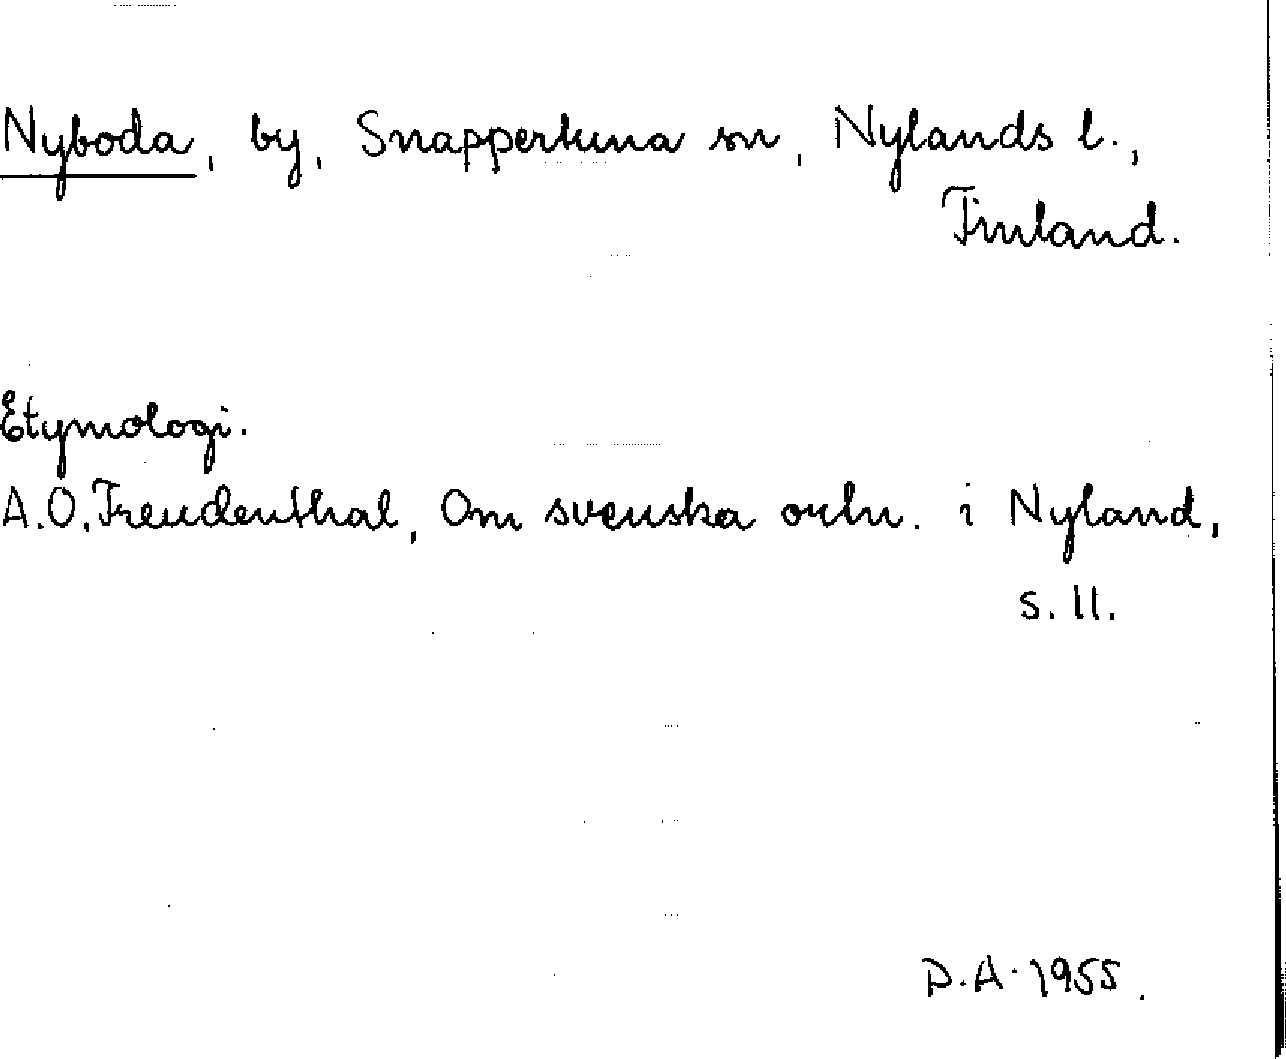 Nyboda, by, Snappertuna sn, Nylands l.,
Finland.
Etymologi.
A.O. Freudenthal, Om svenska ortn. i Nyland,
s. 11.
D.A. 1955.